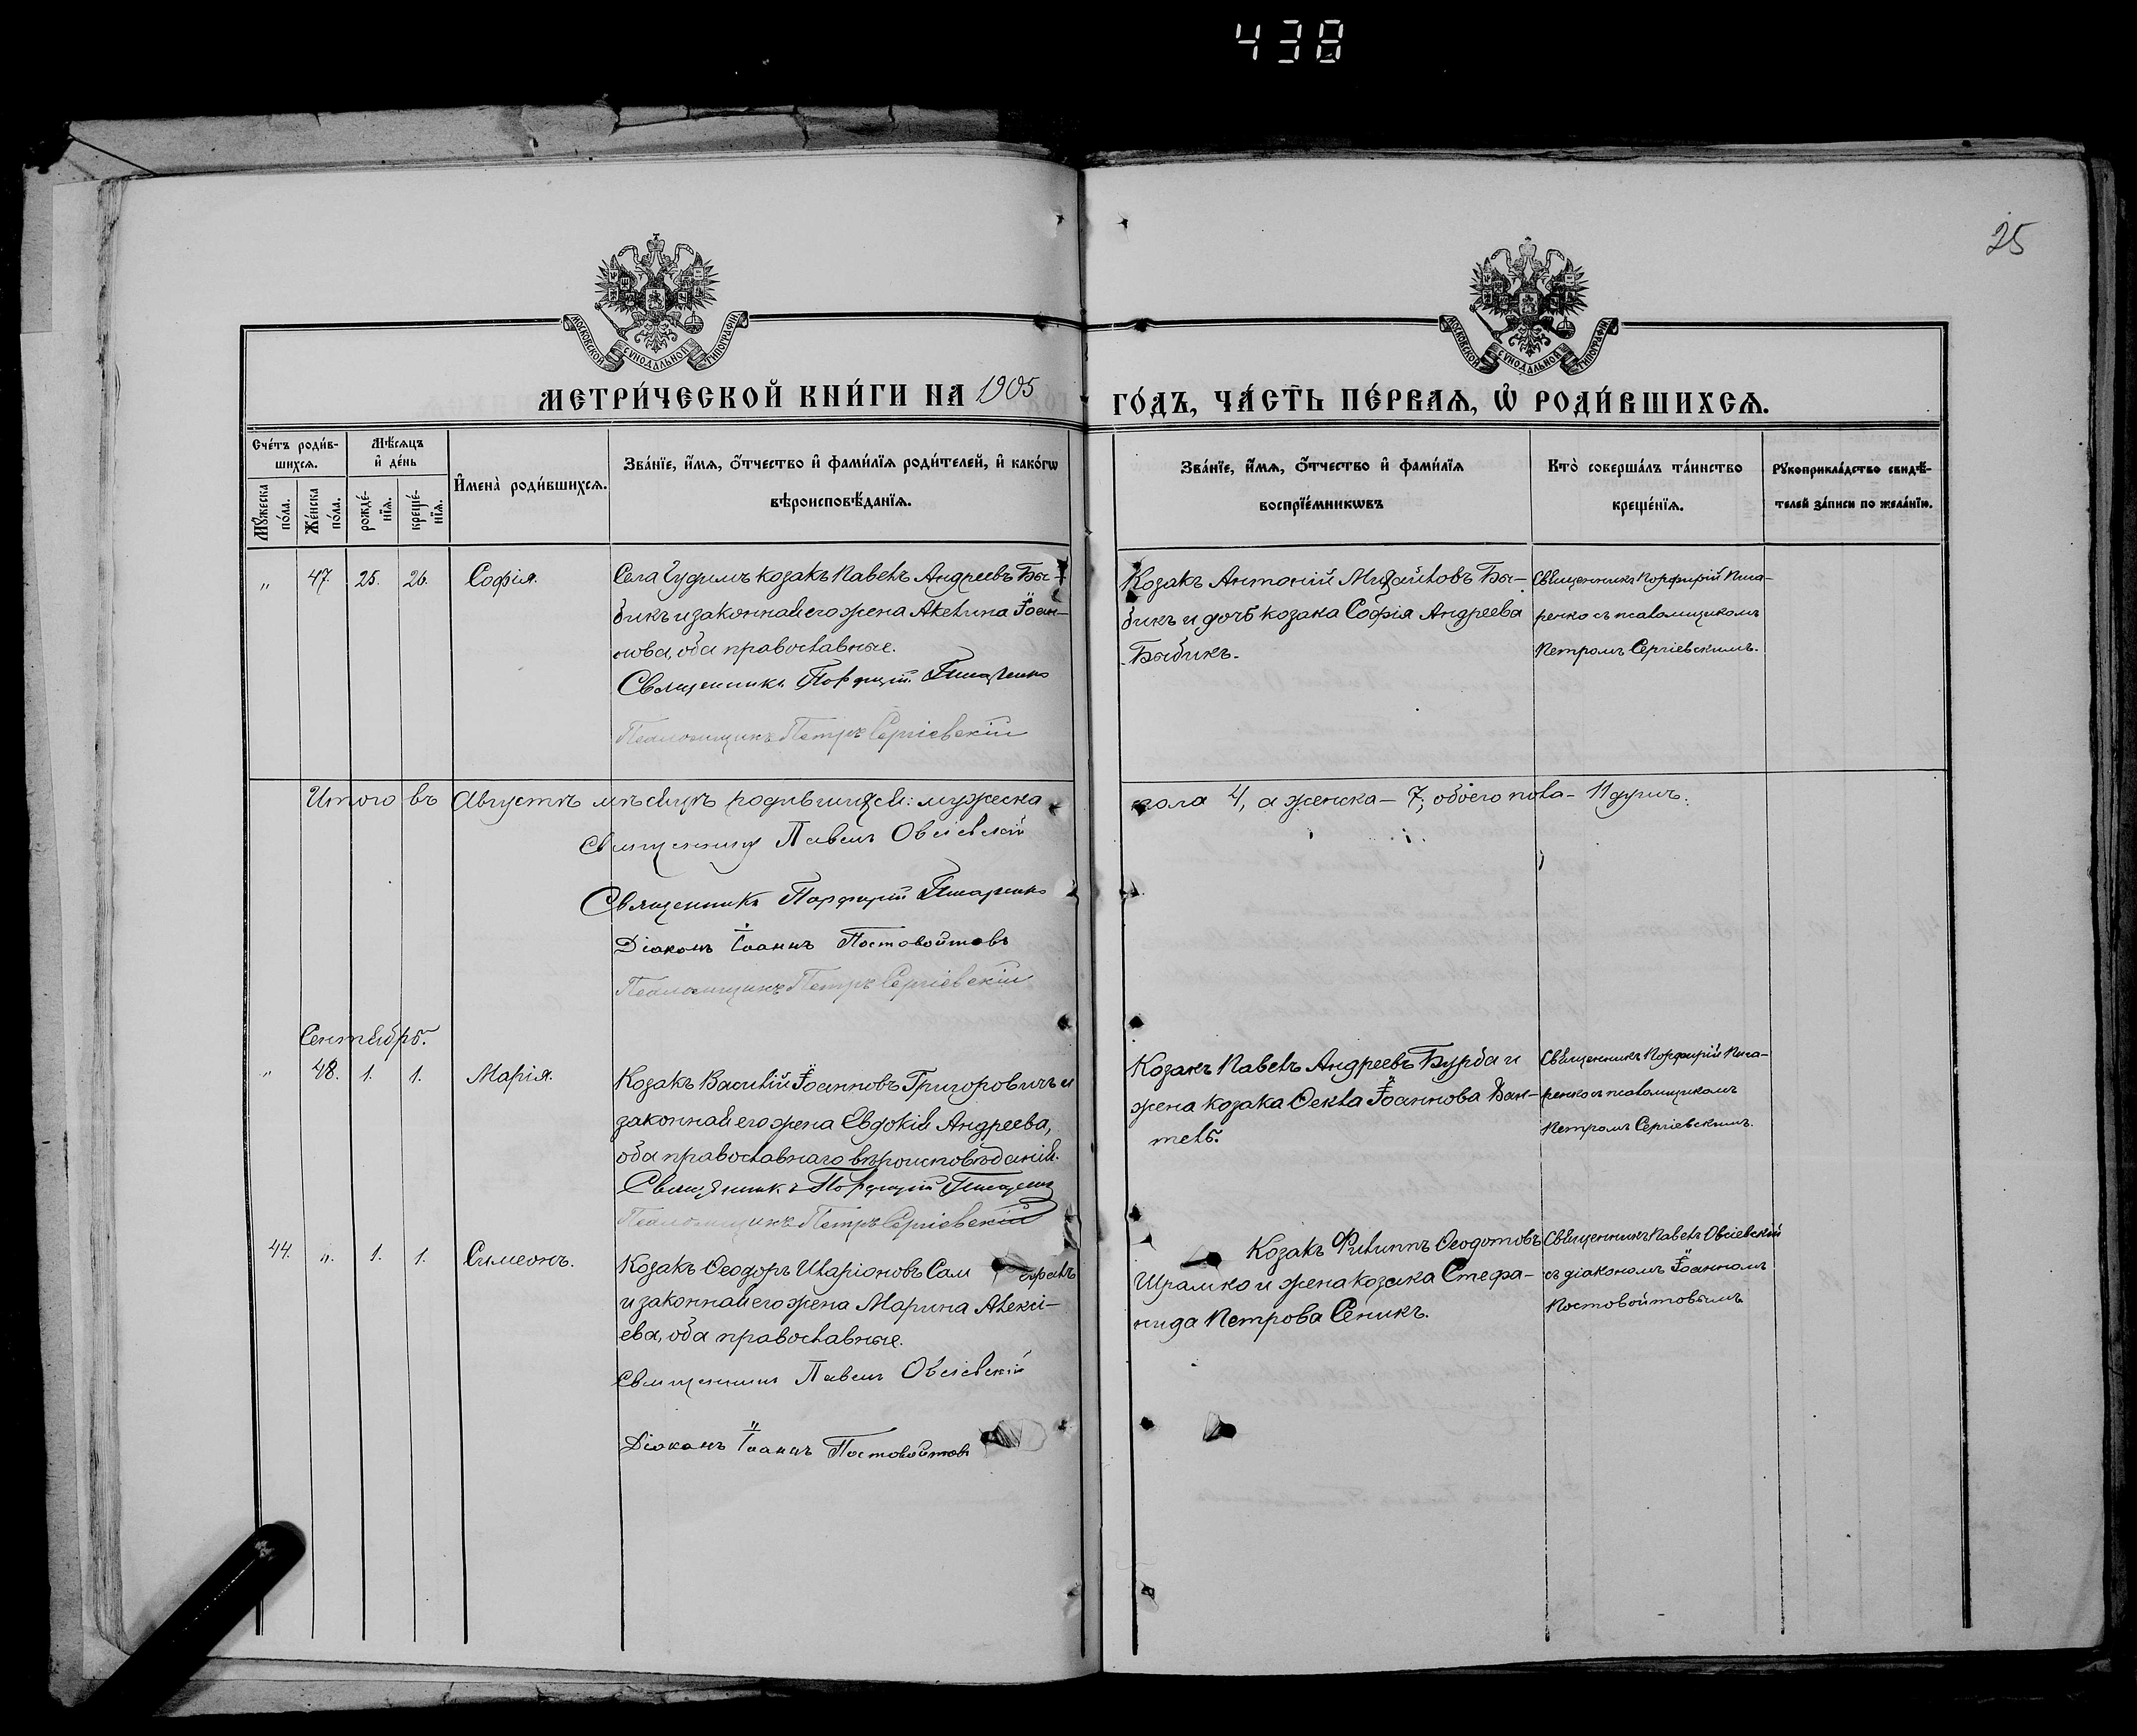 438
25
МОСКОВСКОЙ СѴНОДАЛЬНОЙ ТИПОГРАФІИ
МОСКОВСКОЙ СѴНОДАЛЬНОЙ ТИПОГРАФІИ
МЕТРИ́ЧЕСКОЙ КНИ́ГИ НА 1905
ГО́ДЪ, ЧА́СТЬ ПЕ́РВАѦ, Ѡ҆ РОДИ́ВШИХСѦ.
Сче́тъ роди́в-
шихсѧ.
Мѣ́сѧцъ
и҆ де́нь
Мꙋ́жеска
по́ла.
Же́нска
по́ла.
рожде́-
нїѧ.
креще́-
нїѧ.
И҆мена̀ роди́вшихсѧ.
Зва́нїе, и҆́мѧ, ѻ҆́тчество и҆ фами́лїѧ роди́телей, и҆ како́гѡ
вѣроисповѣ́данїѧ.
Зва́нїе, и҆́мѧ, ѻ҆́тчество и҆ фами́лїѧ
воспрїе́мникѡвъ
Кто̀ соверша́лъ та́инство
креще́нїѧ.
Рꙋкоприкла́дство свидѣ́-
телей за́писи по жела́нїю.
" 47. 25. 26. Софія.
Села Чудимъ козакъ Павелъ Андреевъ Бы-
бикъ и законная его жена Акелина Іоан-
нова, оба православные.
Священникъ Порфирій Писаренко
Псаломщикъ Петръ Сергіевскій
Козакъ Антоній Михайловъ Бы-
бикъ и дочь козака Софія Андреева
Быбикъ.
Священникъ Порфирій Писа-
ренко съ псаломщикомъ
Петромъ Сергіевскимъ.
Итого въ Августѣ мѣсяцѣ родившихся: мужеска
пола 4, а женска - 7, обоего пола - 11 душъ.
Священникъ Павелъ Овсіевскій
Священникъ Порфирій Писаренко
Діаконъ Іоаннъ Постовойтовъ
Псаломщикъ Петръ Сергіевскій
Сентябрь.
" 48. 1. 1. Марія.
Козакъ Василій Іоанновъ Григоровичъ и
законная его жена Евдокія Андреева,
оба православнаго вѣроисповѣданія.
Священникъ Порфирій Писаренко
Псаломщикъ Петръ Сергіевскій
Козакъ Павелъ Андреевъ Бурба и
жена козака Ѳекла Іоаннова
Священникъ Порфирій Писа-
ренко съ псаломщикомъ
Петромъ Сергіевскимъ.
44. " 1. 1. Симеонъ.
Козакъ Ѳеодоръ Иларіоновъ
и законная его жена Марина Алексі-
ева, оба православные.
Священникъ Павелъ Овсіевскій
Діаконъ Іоаннъ Постовойтовъ
Козакъ Филиппъ Ѳеодотовъ
Шрамко и жена козака Стефа-
нида Петрова Сеникъ.
Священникъ Павелъ Овсіевскій
съ діакономъ Іоанномъ
Постовойтовымъ